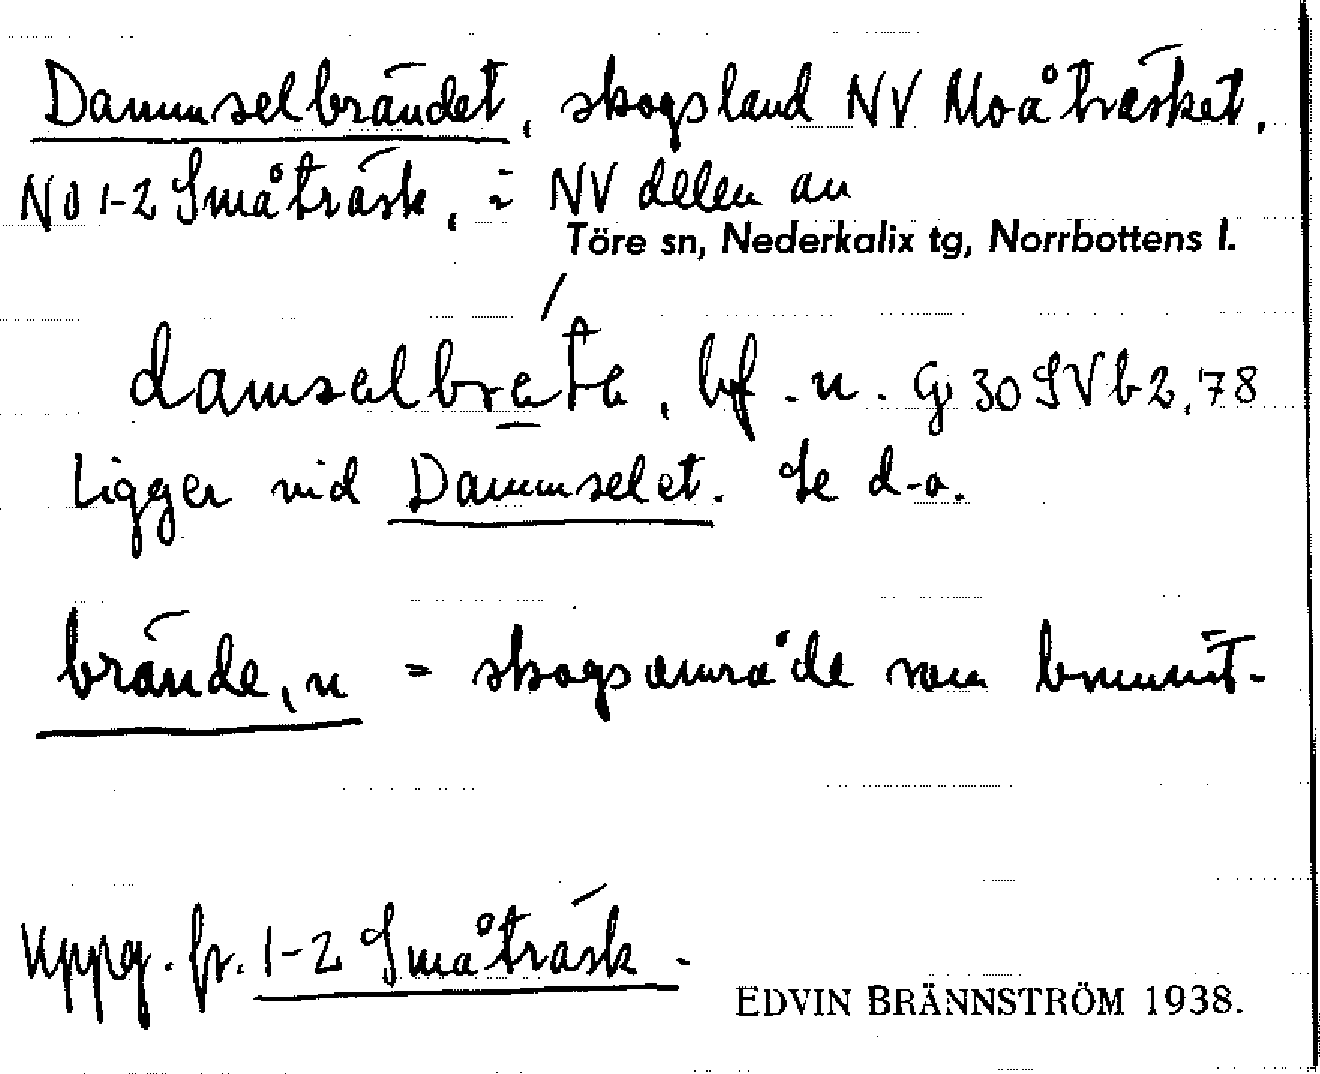 Dammselbrändet, skogsland NV Moåträsket,
NO 1-2 Småträsk, i NV delen av
Töre sn, Nederkalix tg, Norrbottens l.
damsəlbrɛ̲tɛ, bf. n. Gi 30 SV b 2, 78
Ligger vid Dammselet. Se d-o.
brände, n = skogsområde som brunnit-
Uppg. fr. 1-2 Småträsk.
EDVIN BRÄNNSTRÖM 1938.